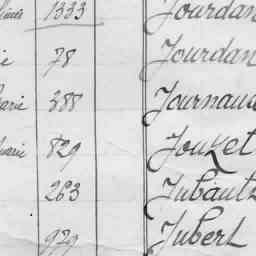 1333 Jourdan
78 Jourdan
388 Journaud
829 Jouzet
263 Jubault
929 Jubert